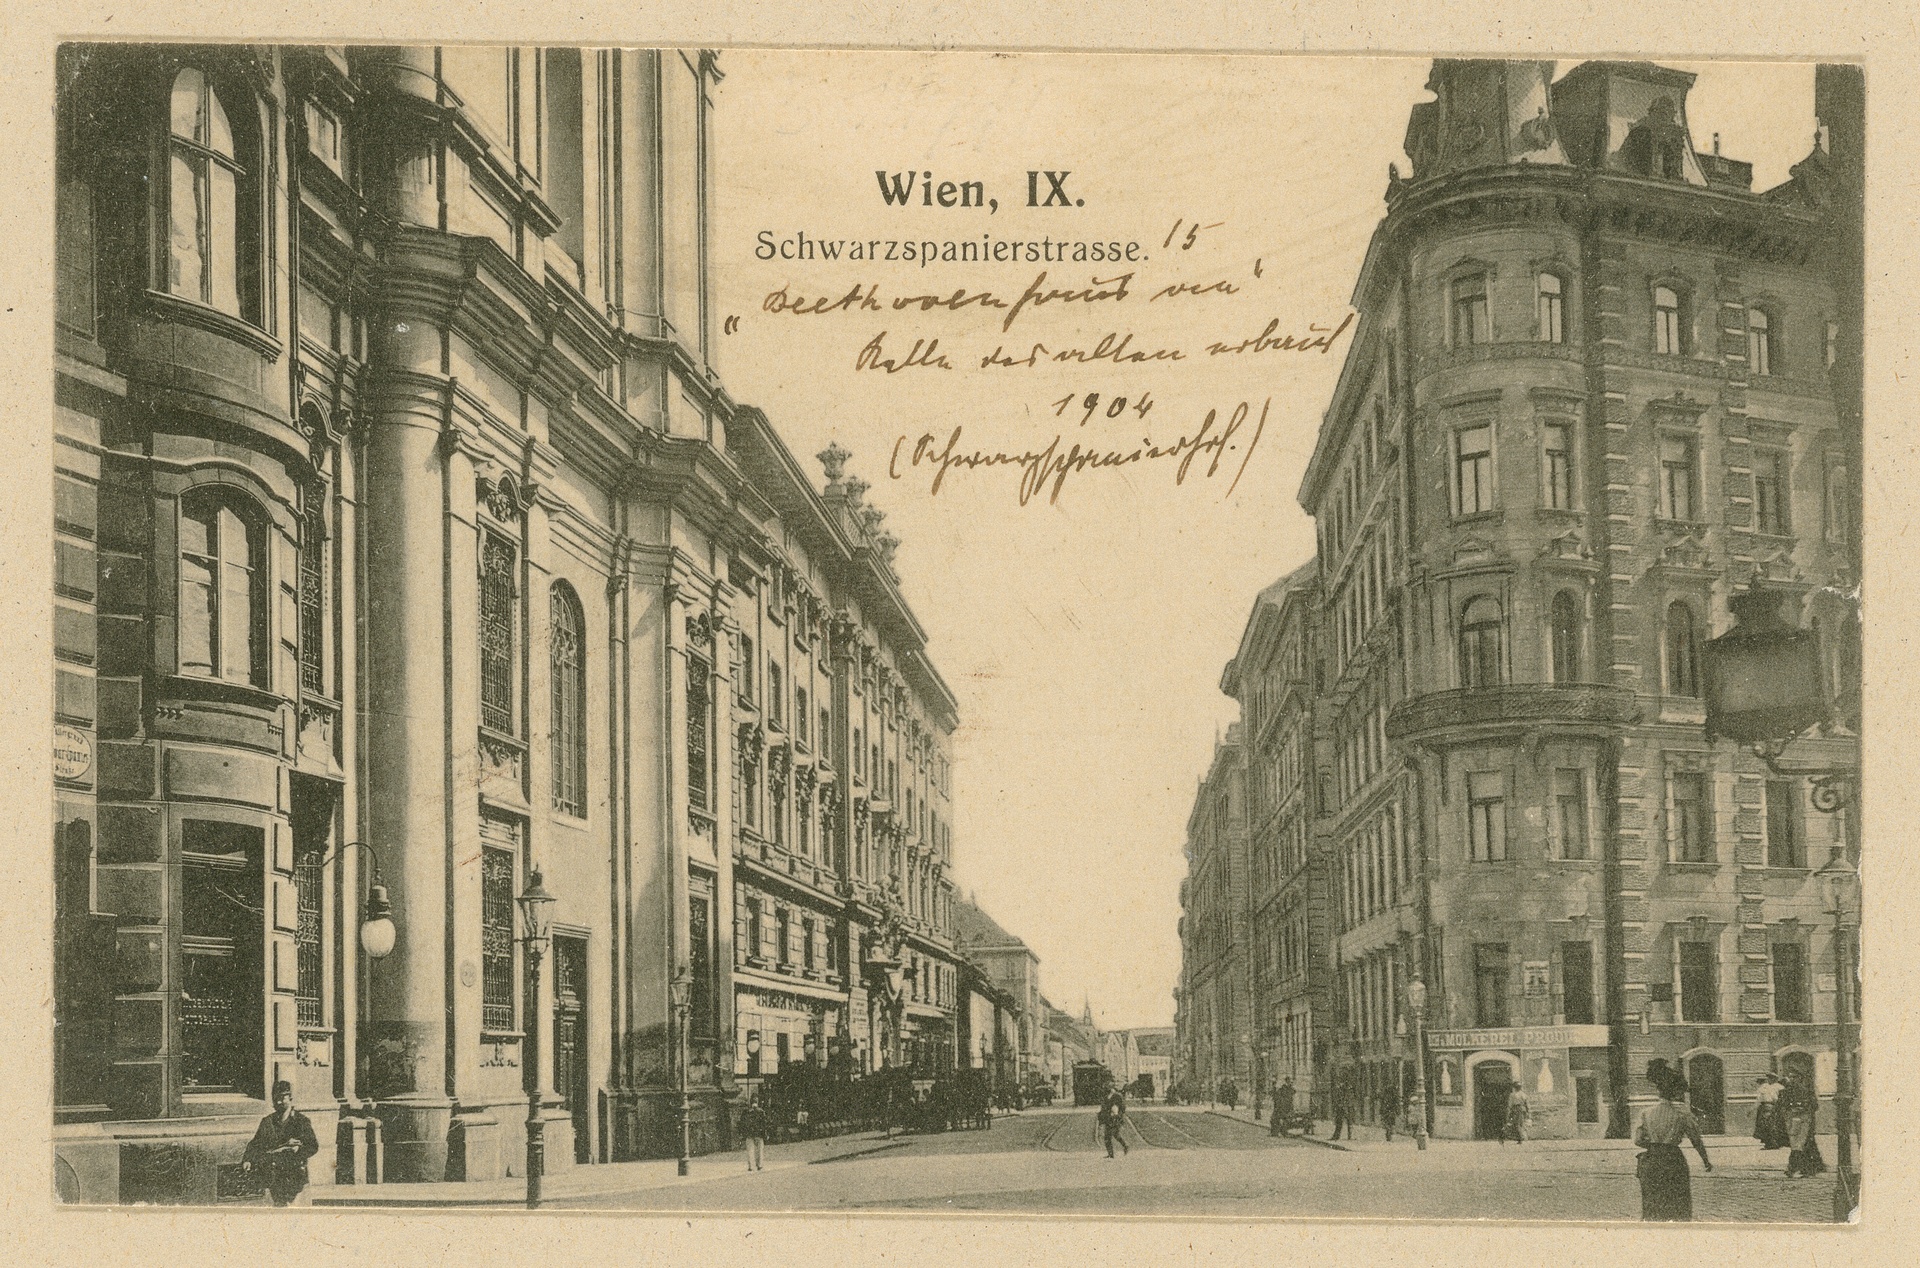 Wien, IX.
Schwarzspanierstrasse. 15
„Beethovenhaus an“
Stelle des alten erbaut
1904
(Schwarzspanierhof.)
MOLKEREI-PROD